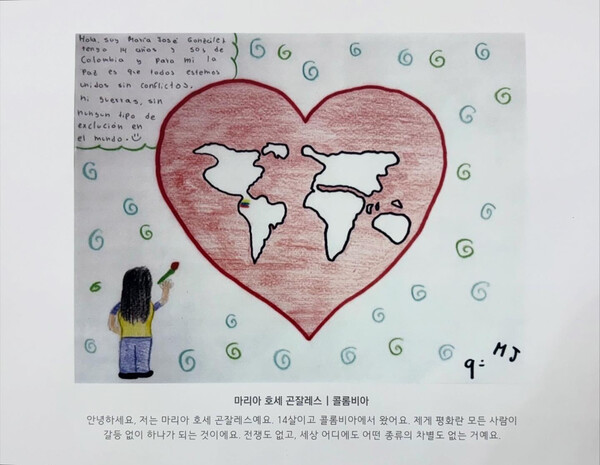 Hola, soy María José González
tengo 14 años y soy de
Colombia y para mi la
Paz es que todos estemos
unidos sin conflictos,
ni guerras, sin
ningun tipo de
exclución en
el mundo.
MJ
마리아 호세 곤잘레스 | 콜롬비아
안녕하세요, 저는 마리아 호세 곤잘레스예요. 14살이고 콜롬비아에서 왔어요. 제게 평화란 모든 사람이
갈등 없이 하나가 되는 것이에요. 전쟁도 없고, 세상 어디에도 어떤 종류의 차별도 없는 거예요.